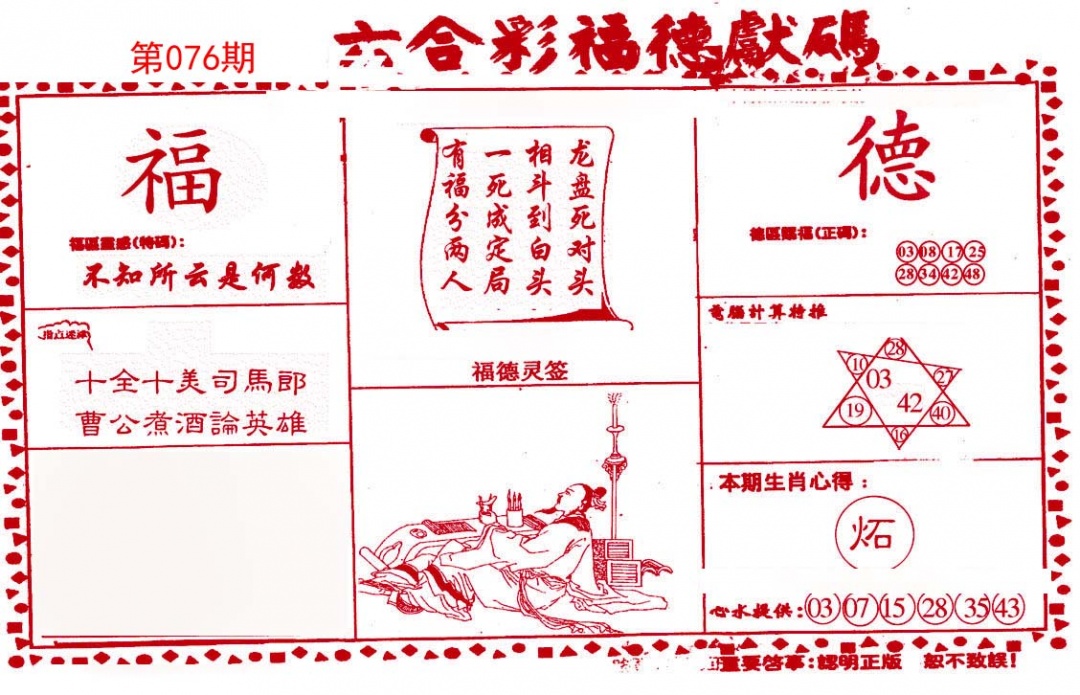 第076期
六合彩福德獻碼
福
福區靈感(特碼):
不知所云是何数
指点迷津
十全十美司馬郎
曹公煮酒論英雄
龙盘死对头
相斗到白头
一死成定局
有福分两人
福德灵签
德
德區賜福(正碼):
03 08 17 25
28 34 42 48
電腦計算特推
28
10
03
27
19
42
40
16
本期生肖心得:
炻
心水提供:03 07 15 28 35 43
重要啓事:認明正版 恕不致誤!